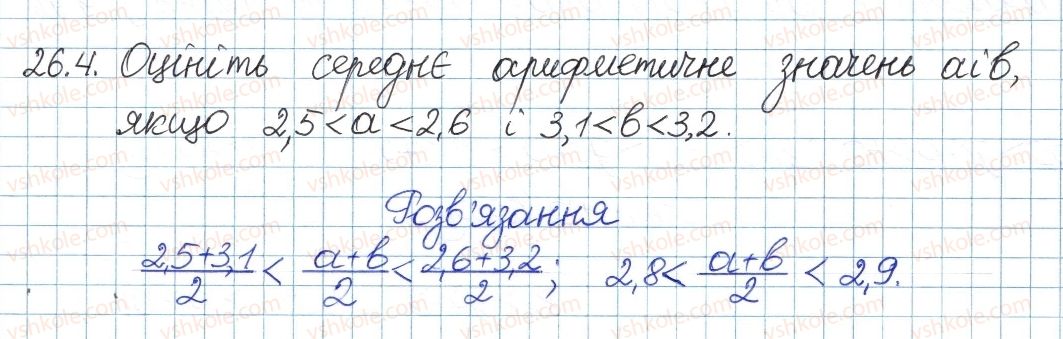 26.4. Оцініть середнє арифметичне значень a і b,
якщо 2,5<a<2,6 і 3,1<b<3,2.
Розв'язання
(2,5+3,1)/2 < (a+b)/2 < (2,6+3,2)/2; 2,8 < (a+b)/2 < 2,9.